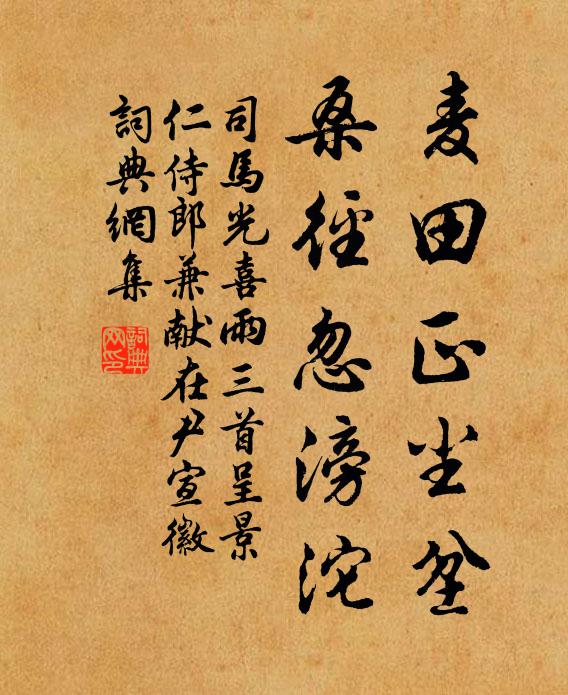 麦田正坐坌
桑径忽滂沱
司馬光喜雨三首呈景
仁侍郎兼献在尹宣徽
詞典網集
詞典
网印